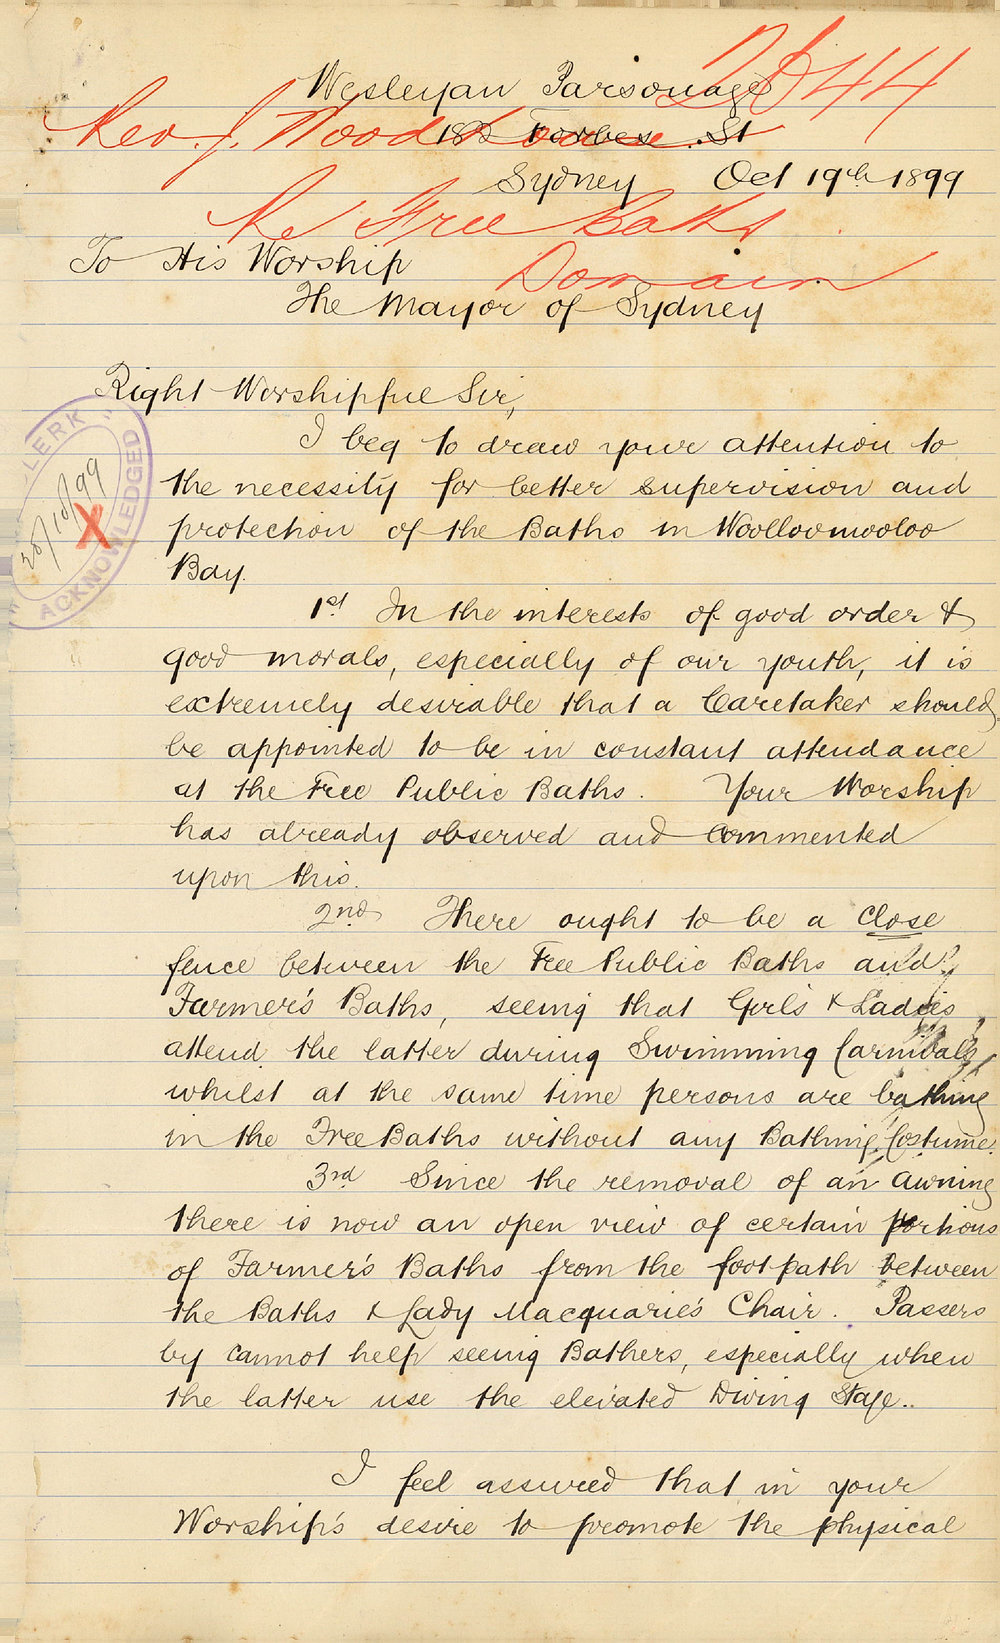 Wesleyan Parsonage
2844
Rev. J. Woodhouse
182 Forbes St
Sydney Oct 19th 1899
Re Free Baths
Domain
To His Worship
The Mayor of Sydney
Right Worshipful Sir,
I beg to draw your attention to
the necessity for better supervision and
protection of the Baths in Woolloomooloo
Bay.
CLERK
25/10/99
X
ACKNOWLEDGED
1st In the interests of good order &
good morals, especially of our youth, it is
extremely desirable that a Caretaker should
be appointed to be in constant attendance
at the Free Public Baths. Your Worship
has already observed and commented
upon this.
2nd There ought to be a close
fence between the Free Public Baths and
Farmer's Baths, seeing that Girls & Ladies
attend the latter during Swimming Carnivals,
whilst at the same time persons are bathing
in the Free Baths without any Bathing Costume.
3rd Since the removal of an awning
there is now an open view of certain portions
of Farmer's Baths from the footpath between
the Baths & Lady Macquarie's Chair. Passers
by cannot help seeing Bathers, especially when
the latter use the elevated Diving Stage..
I feel assured that in your
Worship's desire to promote the physical